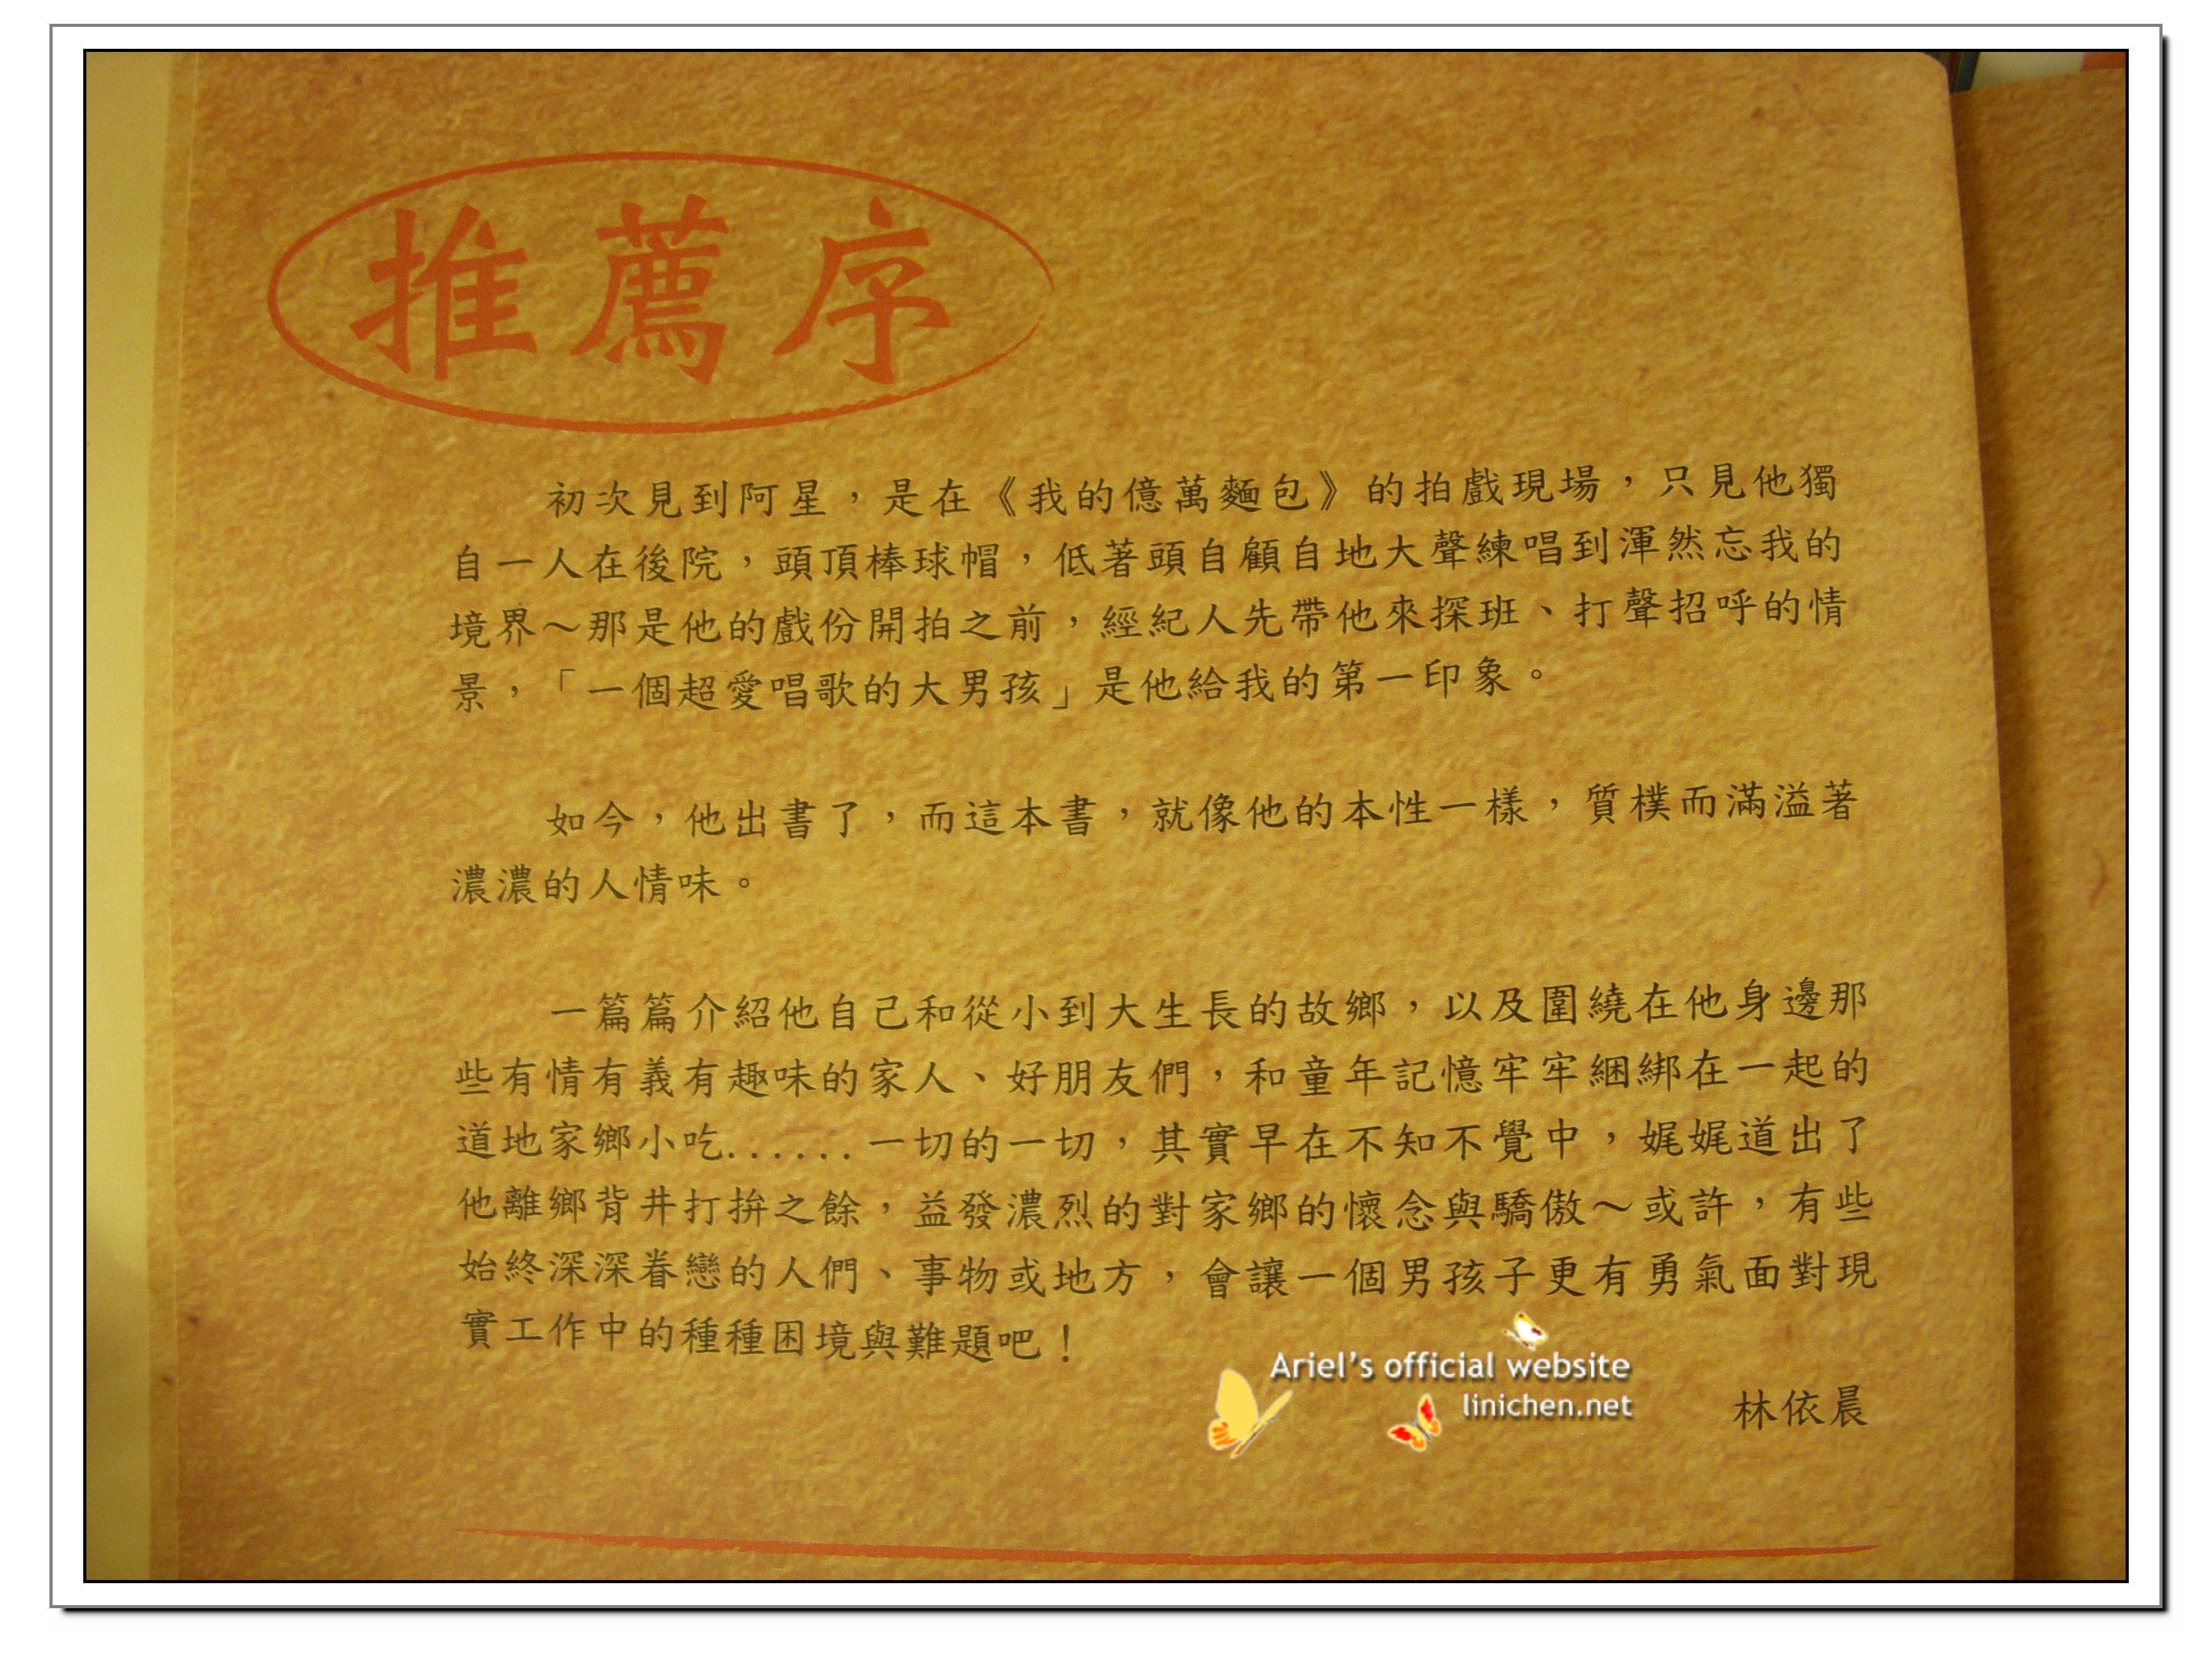 推薦序
初次見到阿星，是在《我的億萬麵包》的拍戲現場，只見他獨
自一人在後院，頭頂棒球帽，低著頭自顧自地大聲練唱到渾然忘我的
境界～那是他的戲份開拍之前，經紀人先帶他來探班、打聲招呼的情
景，「一個超愛唱歌的大男孩」是他給我的第一印象。
如今，他出書了，而這本書，就像他的本性一樣，質樸而滿溢著
濃濃的人情味。
一篇篇介紹他自己和從小到大生長的故鄉，以及圍繞在他身邊那
些有情有義有趣味的家人、好朋友們，和童年記憶牢牢綑綁在一起的
道地家鄉小吃......一切的一切，其實早在不知不覺中，娓娓道出了
他離鄉背井打拚之餘，益發濃烈的對家鄉的懷念與驕傲～或許，有些
始終深深眷戀的人們、事物或地方，會讓一個男孩子更有勇氣面對現
實工作中的種種困境與難題吧！
Ariel's official website
linichen.net
林依晨